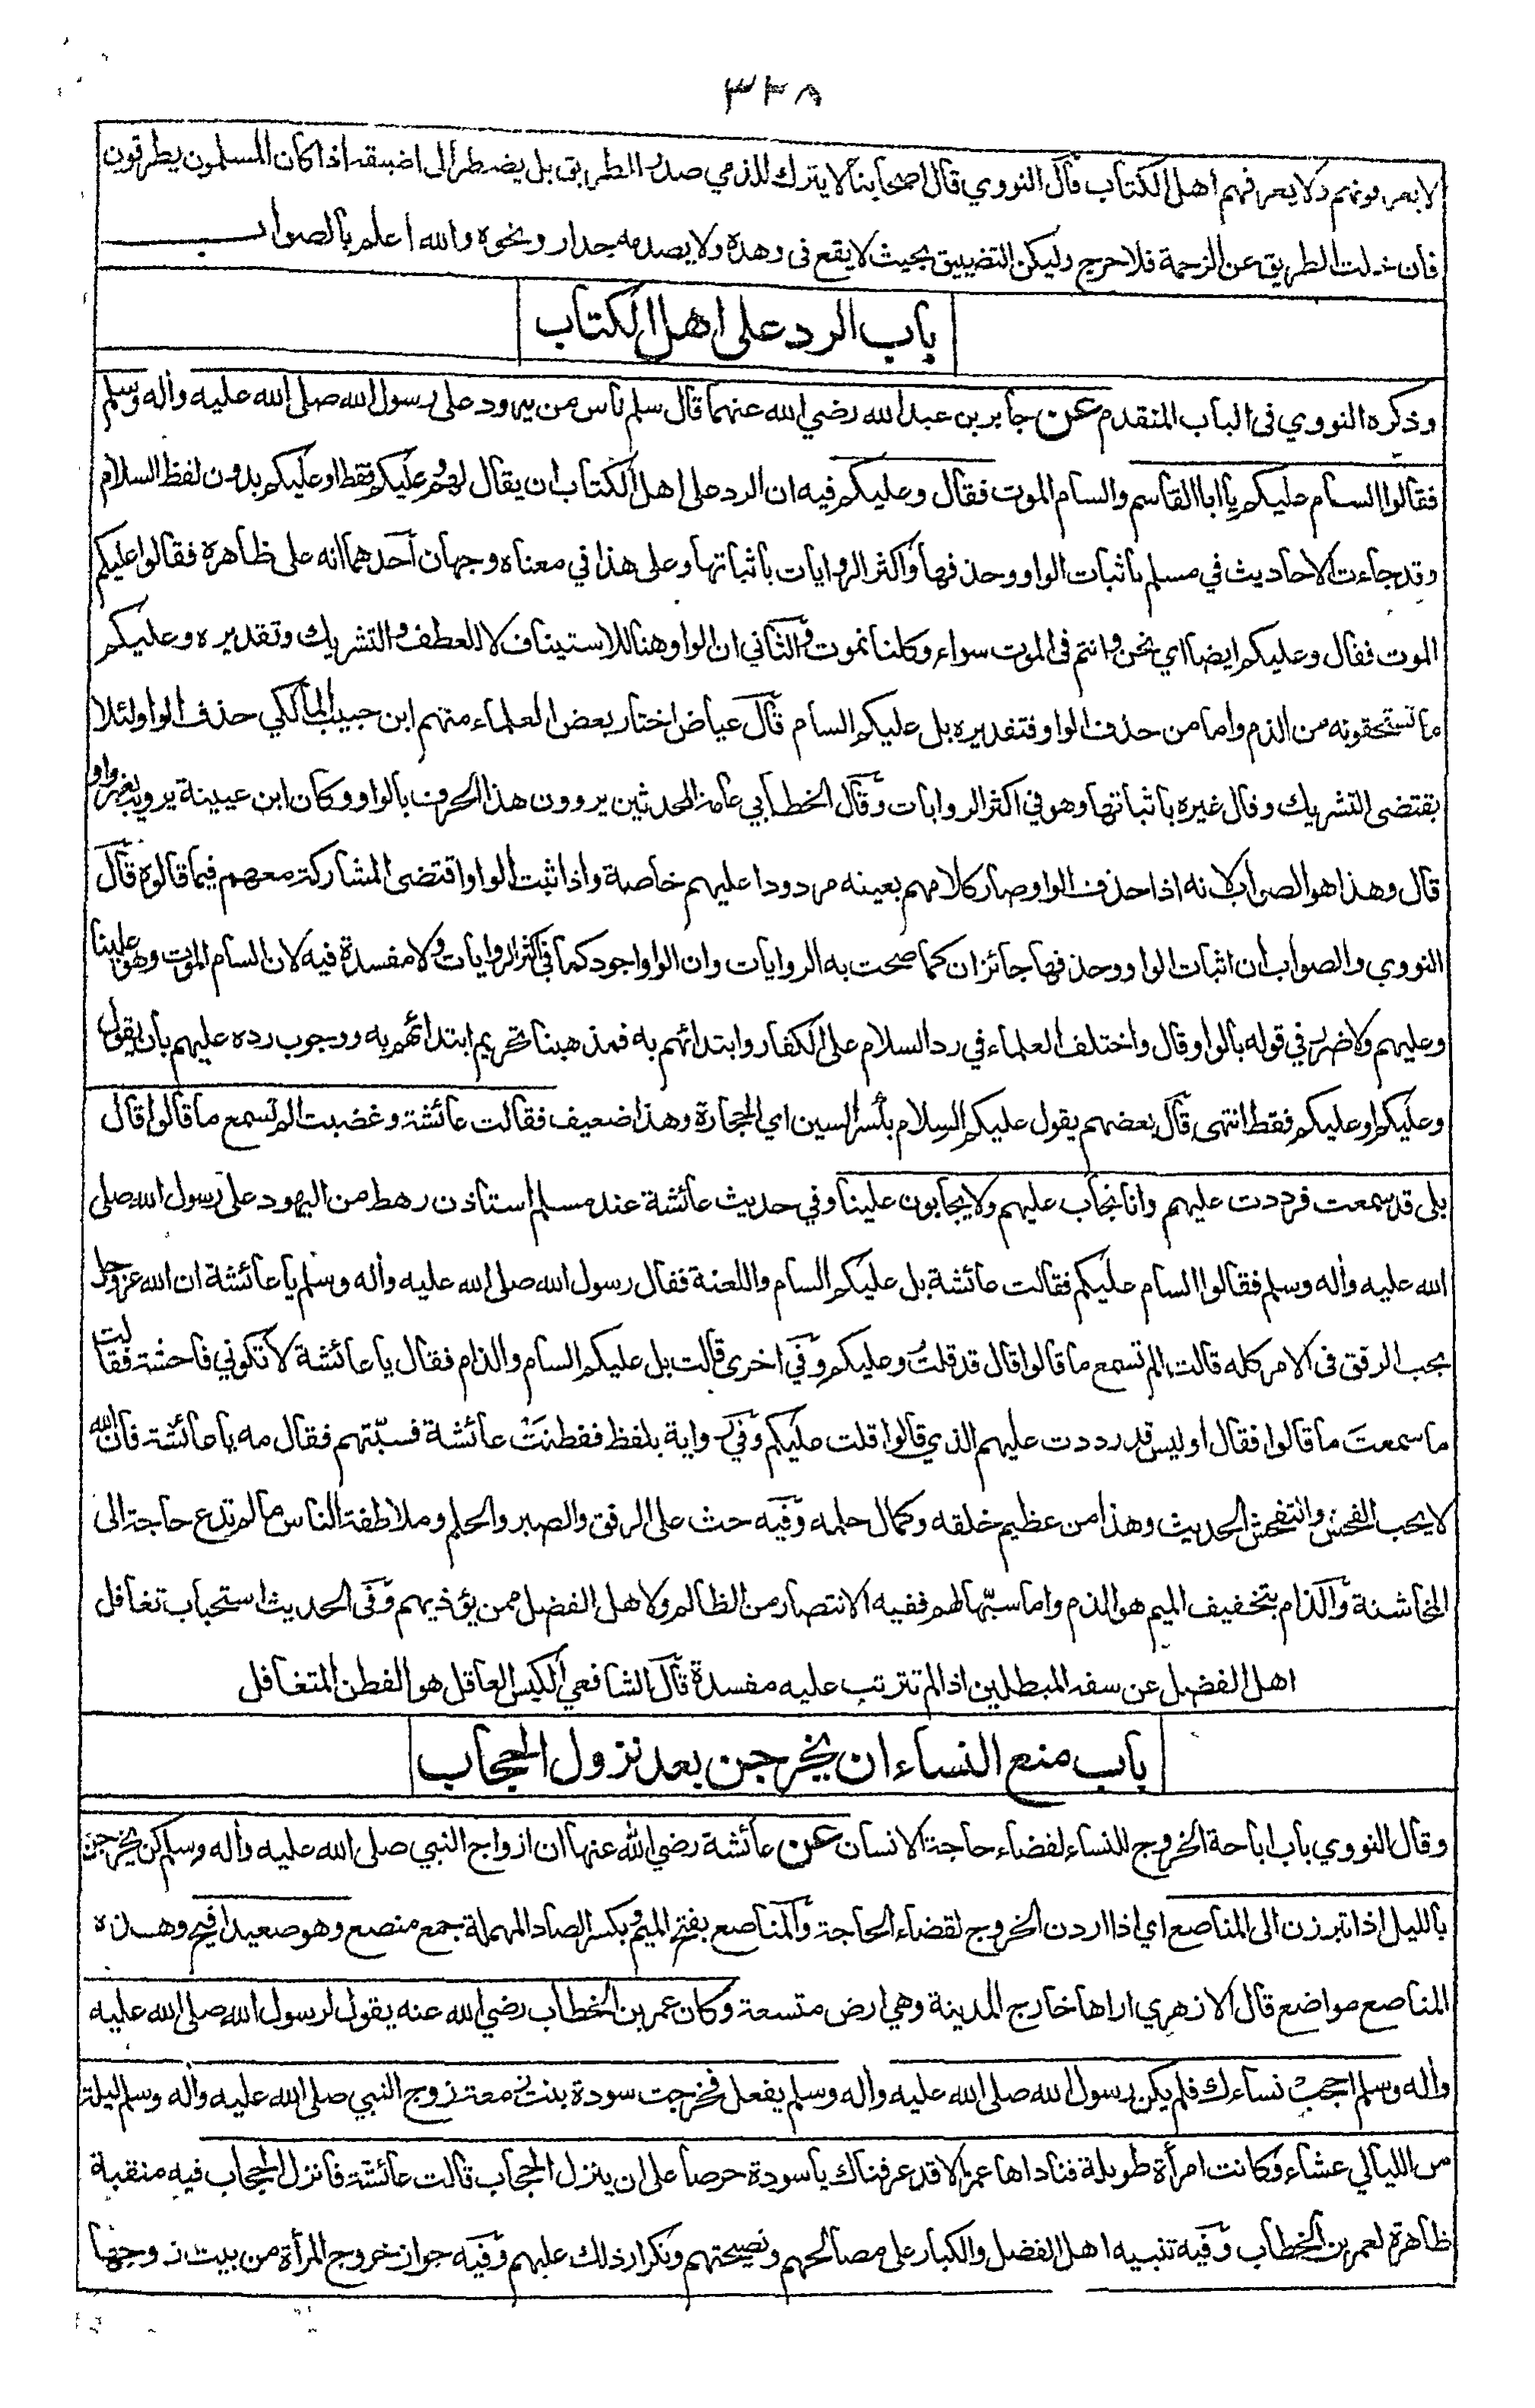 ٣٢٨
لا يعرفونهم ولا يعرفهم اهل الكتاب قال النووي قال اصحابنا لا يترك للذمي صدر الطريق بل يضطر الى اضيقه اذا كان المسلمون يطرقون
فان خلت الطريق عن الزحمة فلا حرج وليكن التضييق بحيث لا يقع فى وهدة ولا يصدمه جدار ونحوه والله اعلم بالصواب
باب الرد على اهل الكتاب
وذكره النووي فى الباب المتقدم عن جابر بن عبد الله رضي الله عنهما قال سلم ناس من يهود على رسول الله صلى الله عليه وأله وسلم
فقالوا السام عليكم يا ابا القاسم والسام الموت فقال وعليكم فيه ان الرد على اهل الكتاب ان يقال لهم وعليكم فقط او عليكم بدون لفظ السلام
وقد جاءت الاحاديث في مسلم باثبات الواو وحذفها واكثر الروايات باثباتها وعلى هذا في معناه وجهان أحدهما انه على ظاهرة فقالوا عليكم
الموت فقال وعليكم ايضا اي نحن وانتم فى الموت سواء وكلنا نموت والثاني ان الواو هنا للاستيناف لا للعطف والتشريك وتقديره وعليكم
ما تستحقونه من الذم واما من حذف الواو فتقديره بل عليكم السام قال عياض اختار بعض العلماء منهم ابن حبيب المالكي حذف الواو لئلا
يقتضى التشريك وقال غيره باثباتها وهو في اكثر الروايات وقال الخطابي عامة المحدثين يروون هذا الحرف بالواو وكان ابن عيينة يرويه بغير واو
قال وهذا هو الصواب لانه اذا حذف الواو صار كلامهم بعينه مردودا عليهم خاصة واذا ثبت الواو اقتضى المشاركة معهم فيما قالوه قال
النووي والصواب ان اثبات الواو وحذفها جائزان كما صحت به الروايات وان الواو اجود كما في اكثر الروايات ولا مفسدة فيه لان السام الموت وهو علينا
وعليهم ولا ضرر في قوله بالواو قال واختلف العلماء في رد السلام على الكفار وابتدائهم به فمذهبنا تحريم ابتدائهم به ووجوب رده عليهم بان يقول
وعليكم او عليكم فقط انتهى قال بعضهم يقول عليكم السلام بكسر السين اي الحجارة وهذا ضعيف فقالت عائشة وغضبت الم تسمع ما قالوا قال
بلى قد سمعت فرددت عليهم وانا نجاب عليهم ولا يجابون علينا وفي حديث عائشة عند مسلم استاذن رهط من اليهود على رسول الله صلى
الله عليه وأله وسلم فقالوا السام عليكم فقالت عائشة بل عليكم السام واللعنة فقال رسول الله صلى الله عليه وأله وسلم يا عائشة ان الله عز وجل
يحب الرفق فى الامر كله قالت الم تسمع ما قالوا قال قد قلت وعليكم وفي اخرى قالت بل عليكم السام والذام فقال يا عائشة لا تكوني فاحشة فقالت
ما سمعت ما قالوا فقال اوليس قد رددت عليهم الذي قالوا قلت عليكم وفي رواية بلفظ ففطنت عائشة فسبّتهم فقال مه يا عائشة فان الله
لا يحب الفحش والتفحش الحديث وهذا من عظيم خلقه وكمال حلمه وفيه حث على الرفق والصبر والحلم وملاطفة الناس ما لم تدع حاجة الى
المخاشنة والذام بتخفيف الميم هو الذم واما سبّها لهم ففيه الانتصار من الظالم ولاهل الفضل ممن يؤذيهم وفى الحديث استحباب تغافل
اهل الفضل عن سفه المبطلين اذا لم تترتب عليه مفسدة قال الشافعي الكيس العاقل هو الفطن المتغافل
باب منع النساء ان يخرجن بعد نزول الحجاب
وقال النووي باب اباحة الخروج للنساء لقضاء حاجة الانسان عن عائشة رضي الله عنها ان ازواج النبي صلى الله عليه وأله وسلم كن يخرجن
بالليل اذا تبرزن الى المناصع اي اذا اردن الخروج لقضاء الحاجة والمناصع بفتح الميم وبكسر الصاد المهملة جمع منصع وهو صعيد افيح وهذه
المناصع مواضع قال الازهري اراها خارج المدينة وهي ارض متسعة وكان عمر بن الخطاب رضي الله عنه يقول لرسول الله صلى الله عليه
وأله وسلم احجب نساءك فلم يكن رسول الله صلى الله عليه وأله وسلم يفعل فخرجت سودة بنت زمعة زوج النبي صلى الله عليه وأله وسلم ليلة
من الليالي عشاء وكانت امرأة طويلة فناداها عمر الا قد عرفناك يا سودة حرصا على ان ينزل الحجاب قالت عائشة فانزل الحجاب فيه منقبة
ظاهرة لعمر بن الخطاب وفيه تنبيه اهل الفضل والكبار على مصالحهم ونصيحتهم وتكرار ذلك عليهم وفيه جواز خروج المرأة من بيت زوجها